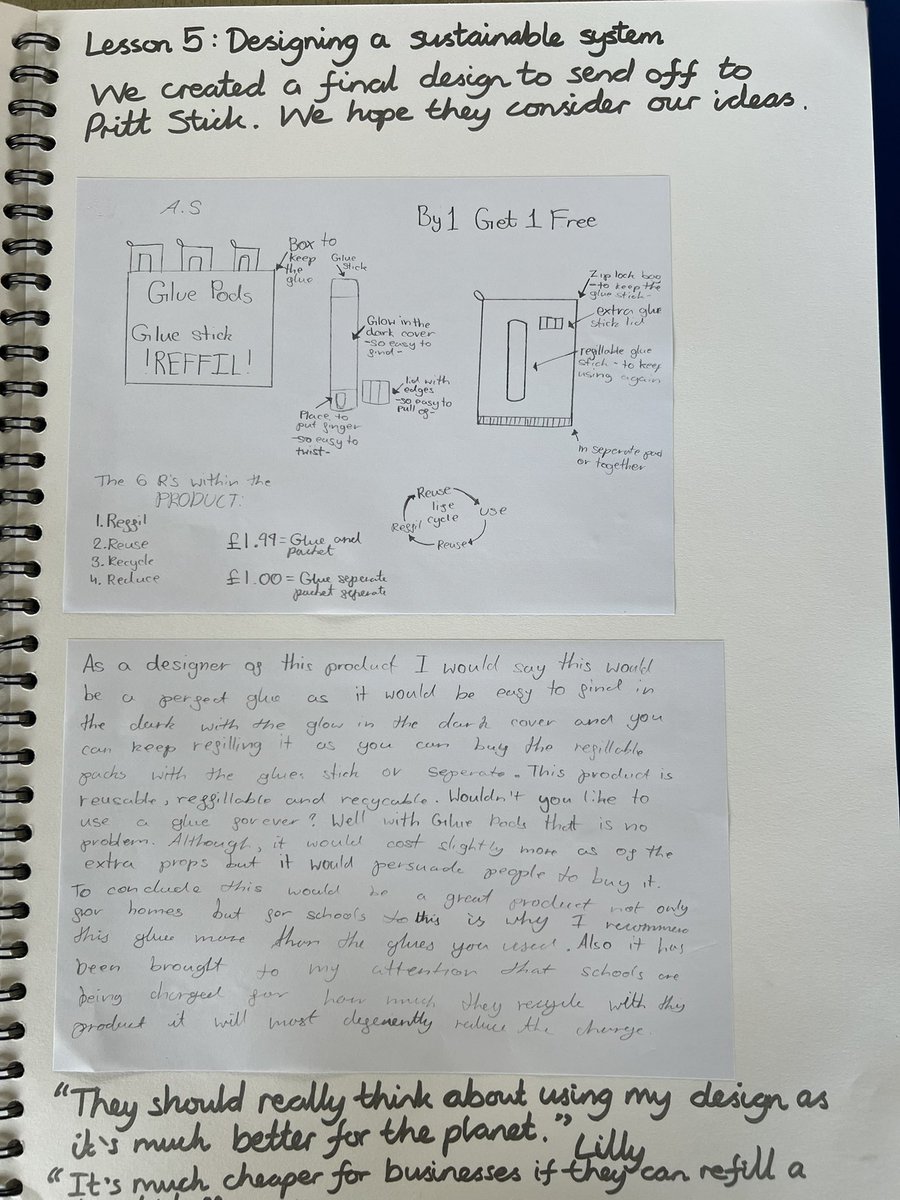 Lesson 5: Designing a sustainable system
We created a final design to send off to
Pritt Stick. We hope they consider our ideas.
A.S
By 1 Get 1 Free
Box to
keep
the
glue
Glue Pods
Glue stick
!REFFIL!
Glue
stick
Glow in the
dark cover
-so easy to
find-
lid with
edges
-so easy to
pull of-
Place to
put finger
-so easy to
twist-
Zip lock bag
-to keep the
glue stick-
extra glue
stick lid
refillable glue
stick - to keep
using again
in seperate pod
or together
The 6 R's within the
PRODUCT:
1. Reffil
2. Reuse
3. Recycle
4. Reduce
£1.99 = Glue and
packet
£1.00 = Glue seperate
packet seperate
Reuse
life
cycle
use
Reuse
Reffil
As a designer of this product I would say this would
be a perfect glue as it would be easy to find in
the dark with the glow in the dark cover and you
can keep refilling it as you can buy the refillable
packs with the glues stick or seperate. This product is
reusable, reffillable and recycable. Wouldn't you like to
use a glue forever? Well with Glue Pods that is no
problem. Although, it would cost slightly more as of the
extra props but it would persuade people to buy it.
To conclude this would be a great product not only
for homes but for schools to this is why I recommend
this glue more than the glues you used. Also it has
been brought to my attention that schools are
being charged for how much they recycle with thy
product it will most defenently reduce the charge.
"They should really think about using my design as
it's much better for the planet." Lilly
"It's much cheaper for businesses if they can refill a